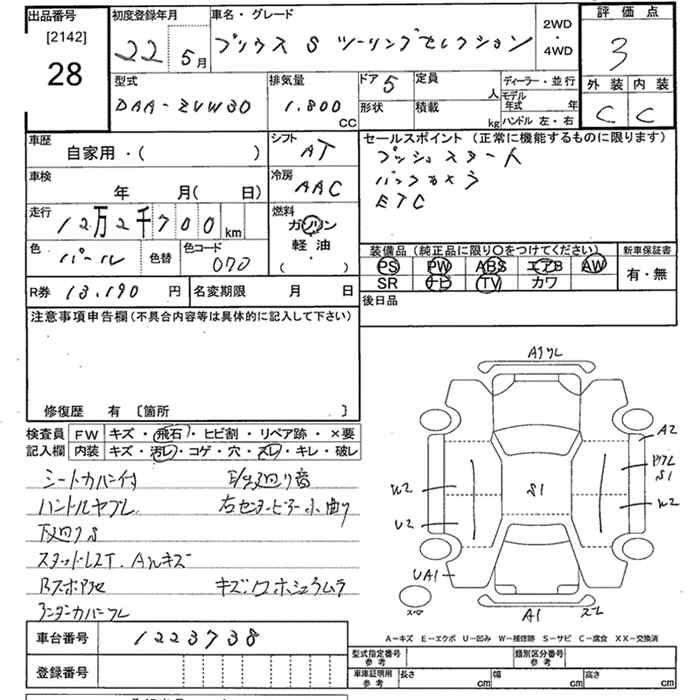 出品番号 初度登録年月 車名・グレード 2WD・4WD 評価点
[2142]
28
22 5月 プリウス S ツーリングセレクション 3
型式 排気量 ドア 5 定員 人 ディーラー・並行 外装 内装
DAA-ZVW30 1.800 CC 形状 積載 kg モデル年式 年 C C
ハンドル 左・右
車歴 シフト セールスポイント (正常に機能するものに限ります)
自家用・( ) AT プッシュスタート
車検 冷房 バックカメラ
年 月( 日) AAC ETC
走行 燃料
12万2千700km ガソリン
軽油
( )
色 パール 色替 色コード 070
装備品 (純正品に限り○をつけてください) 新車保証書
PS PW ABS エアB AW 有・無
SR ナビ TV カワ
R券 13,190 円 名変期限 月 日 後日品
注意事項申告欄 (不具合内容等は具体的に記入して下さい)
修復歴 有 〔箇所 〕
検査員 FW キズ・飛石・ヒビ割・リペア跡・×要
記入欄 内装 キズ・汚レ・コゲ・穴・スレ・キレ・破レ
シートカバー付
ハンドルヤブレ 右センターピラー小曲り
下廻りS
スタッドレスT. AWキズ
アンダーカバーワレ
A1
A2
S1
S1
W2
W2
U2
UA1
A1
スレ
A-キズ E-エクボ U-凹み W-補修跡 S-サビ C-腐食 XX-交換済
車台番号 1223738
登録番号
型式指定番号 参考 類別区分番号 参考
車庫証明用 参考 長さ cm 幅 cm 高さ cm